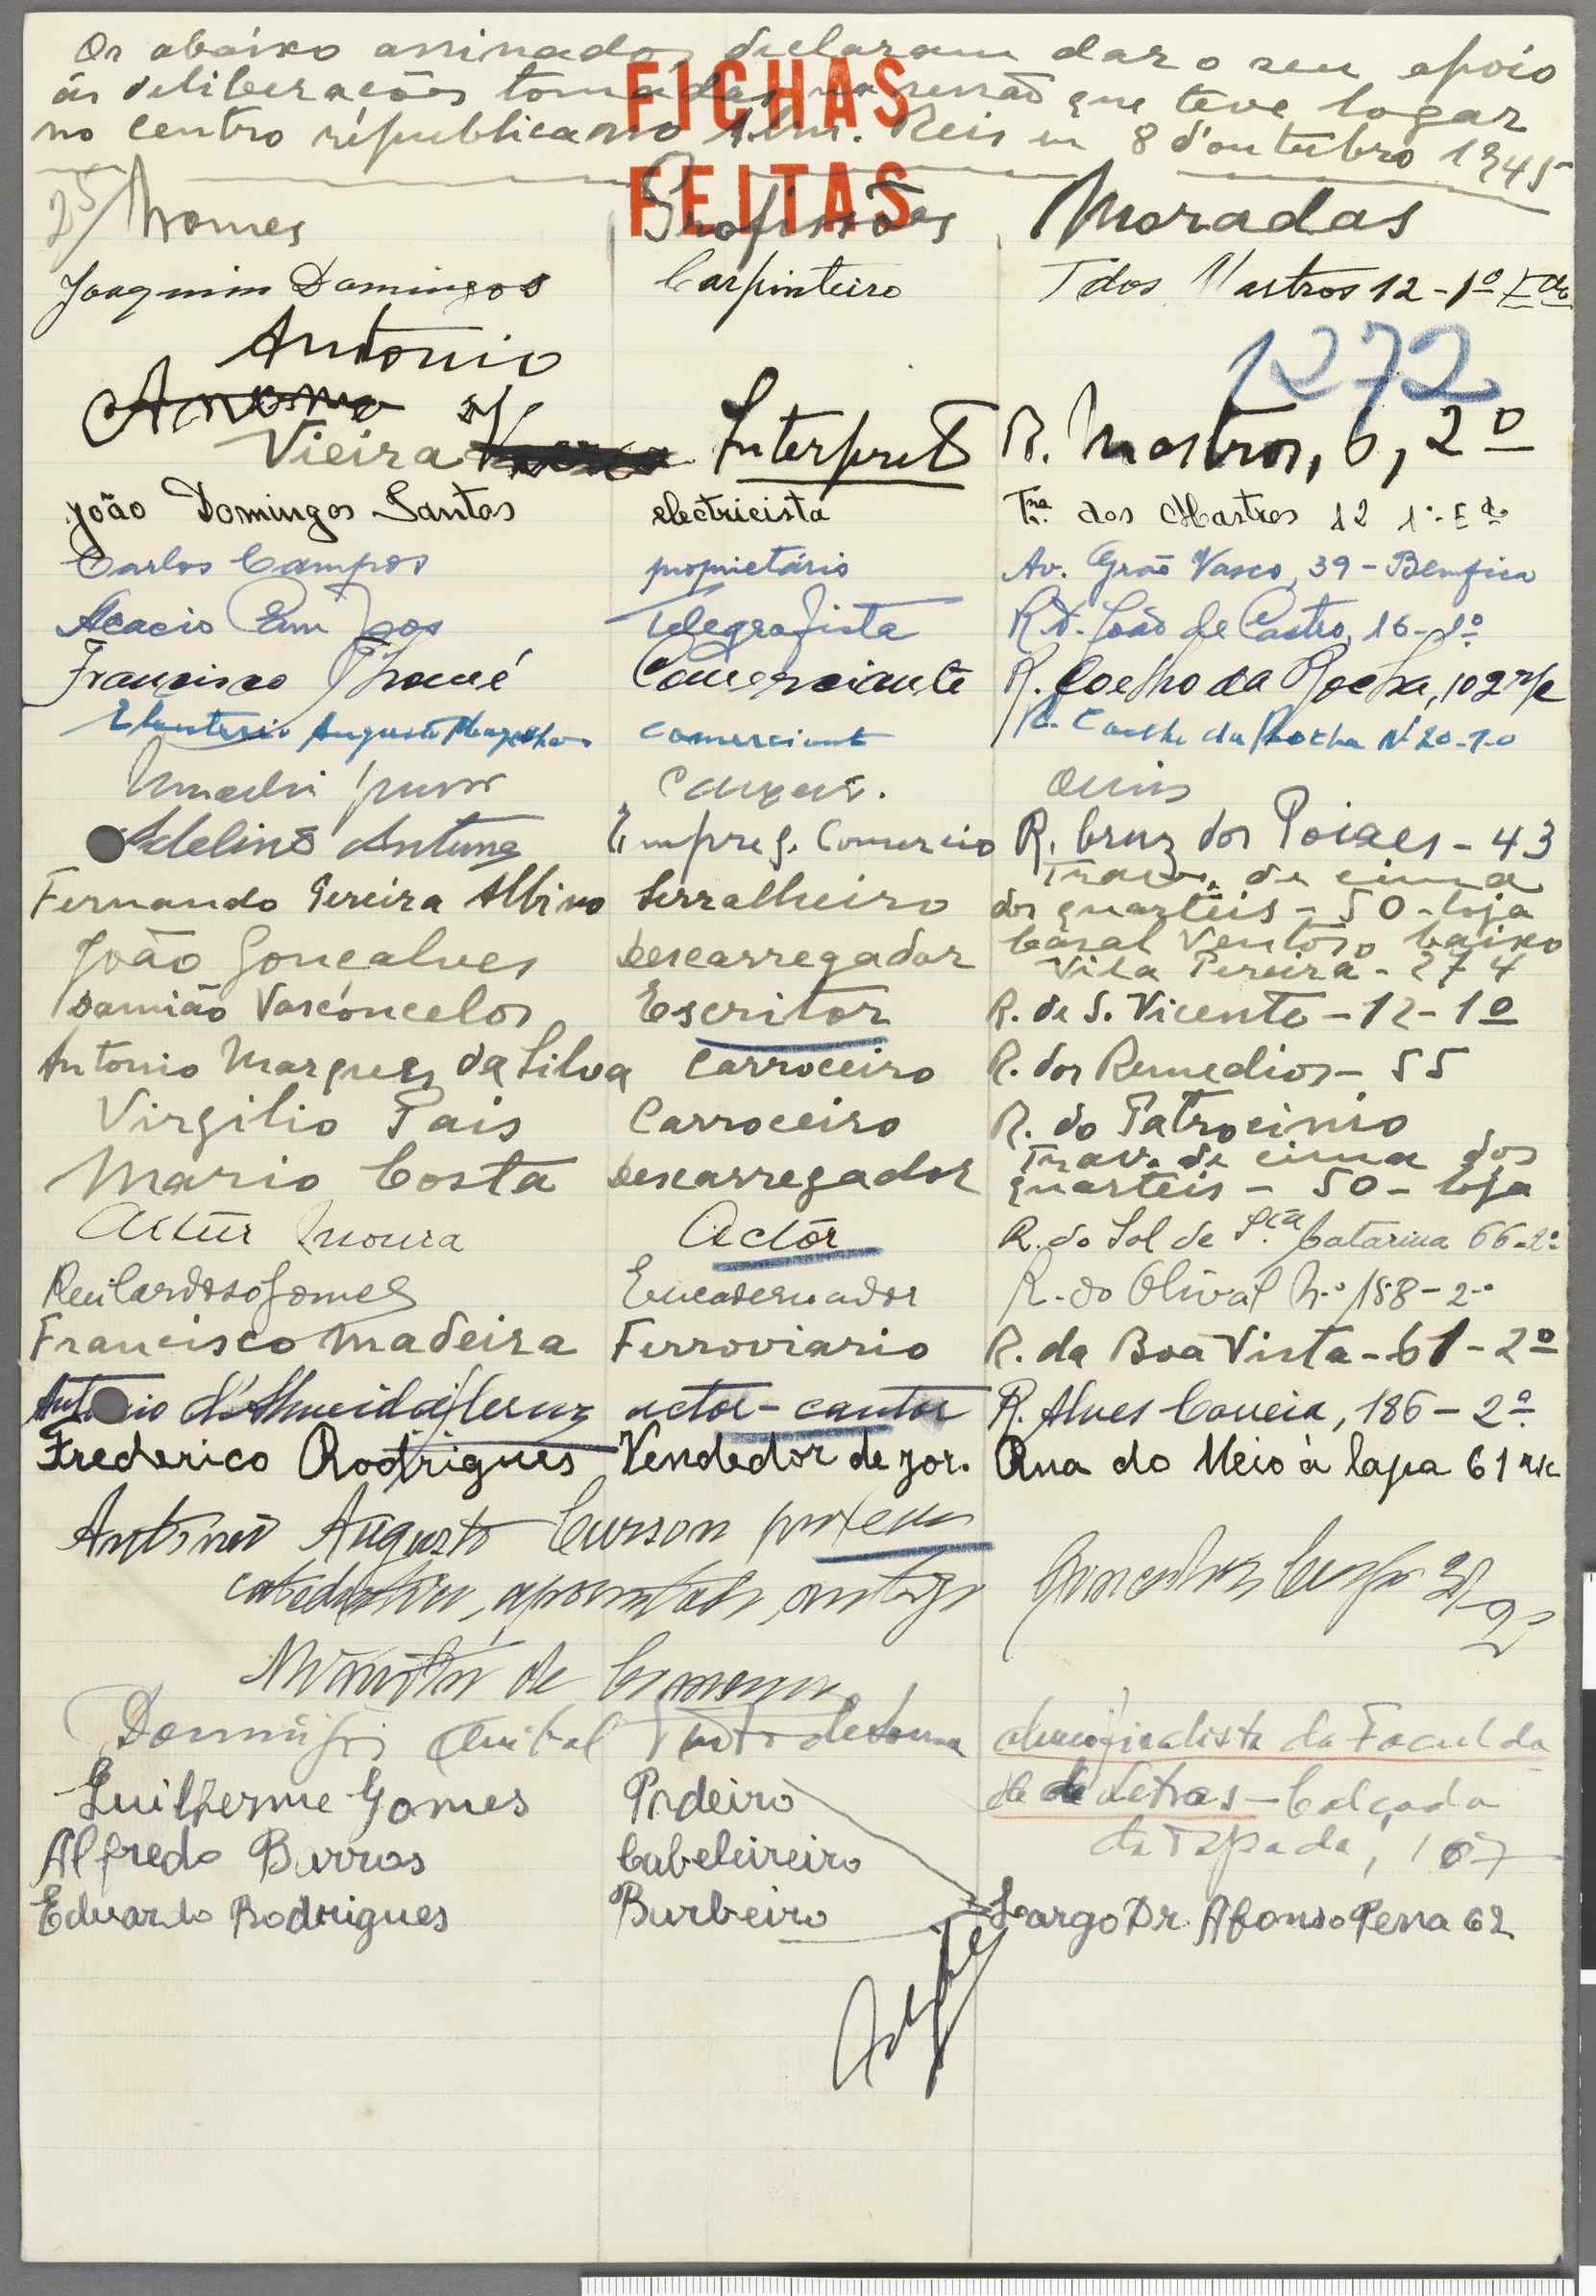 Os abaixo assinados declaram dar o seu apoio
ás deliberações tomadas na sessão que teve logar
no centro républicano Alm. Reis em 8 d'outubro 1945
FICHAS
FEITAS
25/ Nomes Profissões Moradas
Joaquim Domingos Carpinteiro T dos Mastros 12-1º Edo
1272
Antonio
Vieira Interprete R. Mastros, 6, 2º
João Domingos Santos electricista Tra. dos Mastros 12 1º. Edo
Carlos Campos proprietário Av. Grão Vasco, 39 - Bemfica
Acacio Campos Telegrafista R. D. João de Castro, 16-1º
Francisco Thomé Comerciante R. Coelho da Rocha, 102 r/c
Eleuterio Augusto comerciante R. Coelho da Rocha Nº 20-1-o
Adelino Antunes Empreg. Comercio R. Cruz dos Poiaes - 43
Fernando Pereira Albino Serralheiro Trav. de cima
dos quarteis - 50 - loja
João Gonçalves Descarregador Casal Ventoso baixo
Vila Pereira - 274
Damião Vasconcelos Escritor R. de S. Vicente - 12 - 1º
Antonio Marques da Silva Carroceiro R. dos Remedios - 55
Virgilio Pais Carroceiro R. do Patrocinio
Mario Costa Descarregador Trav. de cima dos
quarteis - 50 - loja
Artur Moura Actôr R. do Sol de Sta. Catarina 66-2º
Rui Cardoso Gomes Encadernador R. do Olival N.º 158-2.º
Francisco Madeira Ferroviario R. da Boa Vista - 61 - 2º
Antonio d'Almeida Cruz actor-cantor R. Alves Correia, 186 - 2º
Frederico Rodrigues Vendedor de jor. Rua do Meio à lapa 61 r/c
Antonio Augusto Curson professor
catedratico, aposentado, antigo
Ministro de
Domingos da Faculda
de de Letras - Calçada
da Tapada, 107
Guilherme Gomes Padeiro
Alfredo Barros Cabeleireiro
Eduardo Rodrigues Barbeiro Largo Dr. Afonso Pena 62